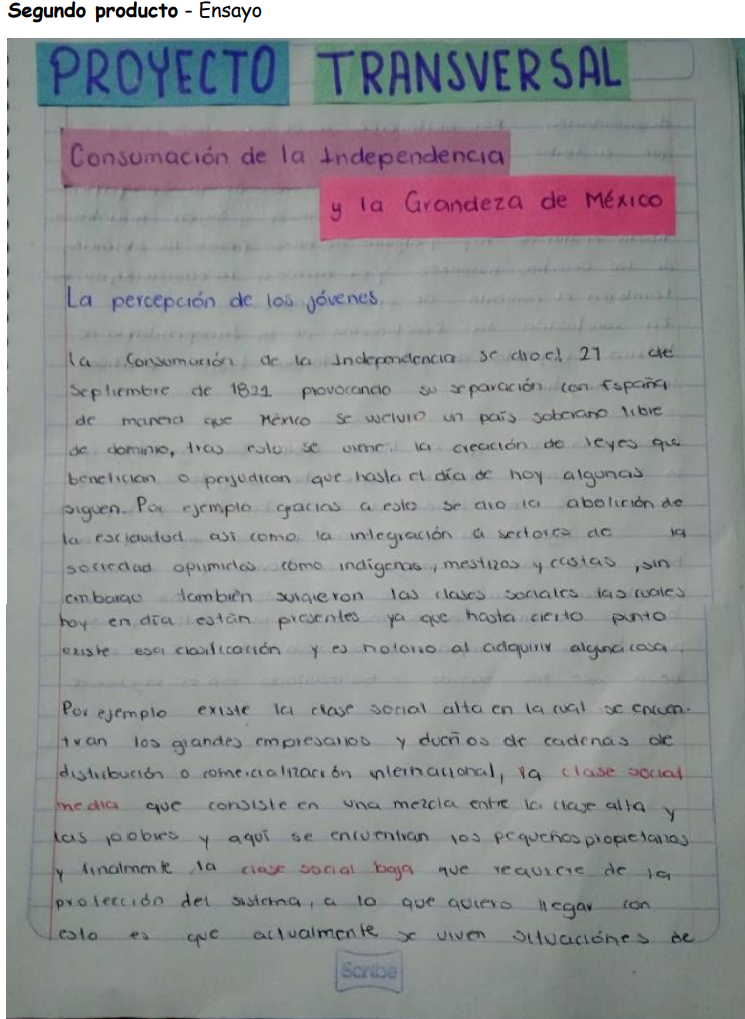 Segundo producto - Ensayo
PROYECTO TRANSVERSAL
Consumación de la Independencia
y la Grandeza de México
La percepción de los jóvenes.
La Consumación de la Independencia se dio el 27 de
Septiembre de 1821 provocando su separación con España
de manera que México se volvió un país soberano libre
de dominio, tras esto se vime la creación de leyes que
benefician o perjudican que hasta el día de hoy algunas
siguen. Por ejemplo gracias a esto se dio la abolición de
la esclavitud así como la integración a sectores de la
sociedad oprimidos como indígenas, mestizos y castas, sin
embargo también surgieron las clases sociales las cuales
hoy en día están presentes ya que hasta cierto punto
existe esa clasificación y es notorio al adquirir alguna cosa.
Por ejemplo existe la clase social alta en la cual se encuen-
tran los grandes empresarios y dueños de cadenas de
distribución o comercialización internacional, la clase social
media que consiste en una mezcla entre la clase alta y
las pobres y aquí se encuentran los pequeños propietarios
y finalmente la clase social baja que requiere de la
protección del sistema, a lo que quiero llegar con
esto es que actualmente se viven situaciónes de
Scribe